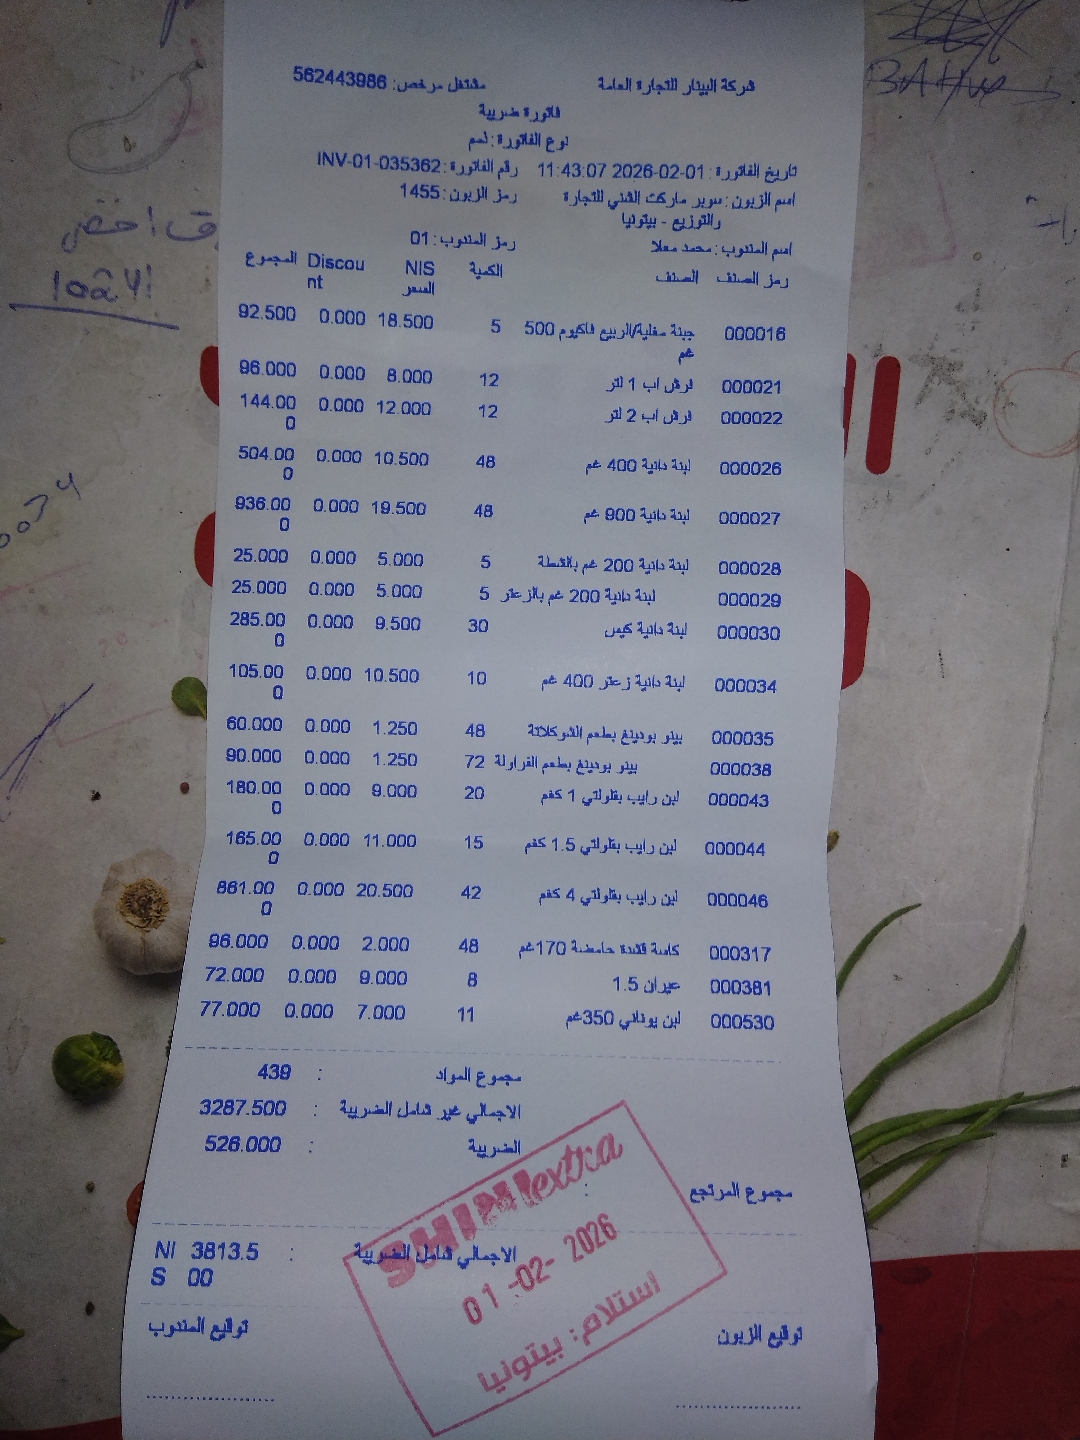 شركة البينار للتجارة العامة مشتغل مرخص: 562443986
فاتورة ضريبية
نوع الفاتورة: ذمم
تاريخ الفاتورة: 2026-02-01 11:43:07 رقم الفاتورة: INV-01-035362
اسم الزبون: سوبر ماركت الشني للتجارة رمز الزبون: 1455
والتوزيع - بيتونيا
اسم المندوب: محمد معلا رمز المندوب: 01
رمز الصنف الصنف الكمية NIS السعر Discount المجموع
000016 جبنة مغلية/الربيع فاكيوم 500 غم 5 18.500 0.000 92.500
000021 فرش اب 1 لتر 12 8.000 0.000 96.000
000022 فرش اب 2 لتر 12 12.000 0.000 144.000
000026 لبنة دانية 400 غم 48 10.500 0.000 504.000
000027 لبنة دانية 900 غم 48 19.500 0.000 936.000
000028 لبنة دانية 200 غم بالقشطة 5 5.000 0.000 25.000
000029 لبنة دانية 200 غم بالزعتر 5 5.000 0.000 25.000
000030 لبنة دانية كيس 30 9.500 0.000 285.000
000034 لبنة دانية زعتر 400 غم 10 10.500 0.000 105.000
000035 بينو بودينغ بطعم الشوكلاتة 48 1.250 0.000 60.000
000038 بينو بودينغ بطعم الفراولة 72 1.250 0.000 90.000
000043 لبن رايب بقلولتي 1 كغم 20 9.000 0.000 180.000
000044 لبن رايب بقلولتي 1.5 كغم 15 11.000 0.000 165.000
000046 لبن رايب بقلولتي 4 كغم 42 20.500 0.000 861.000
000317 كاسة قشدة حامضة 170غم 48 2.000 0.000 96.000
000381 عيران 1.5 8 9.000 0.000 72.000
000530 لبن يوناني 350غم 11 7.000 0.000 77.000
مجموع المواد : 439
الاجمالي غير شامل الضريبة : 3287.500
الضريبة : 526.000
مجموع المرتجع :
الاجمالي شامل الضريبة : 3813.500 NIS
SHINI extra
01-02-2026
استلام: بيتونيا
توقيع الزبون توقيع المندوب